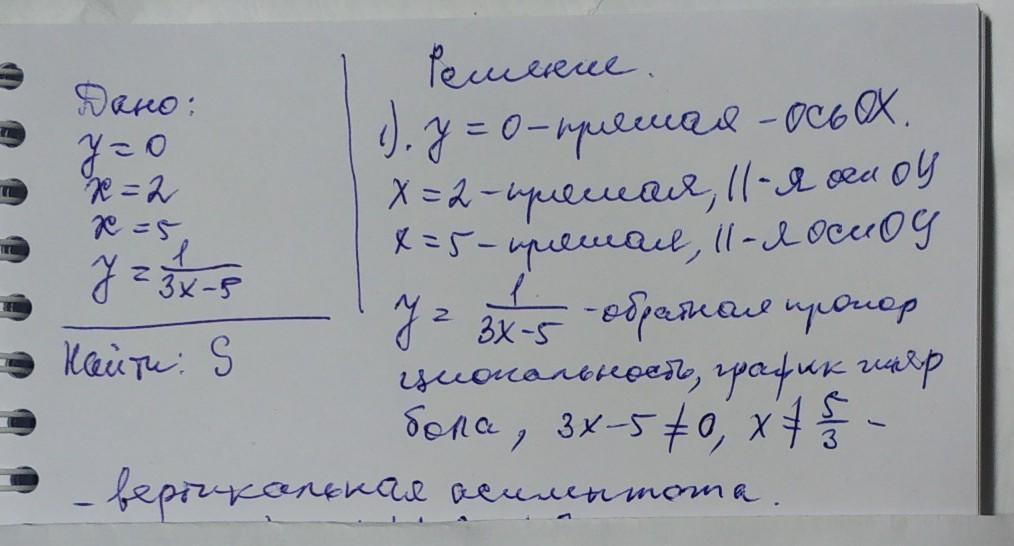 Дано:
y = 0
x = 2
x = 5
y = 1/(3x-5)
Найти: S
Решение.
1). y = 0 - прямая - ось OX.
x = 2 - прямая, ||-я оси OY
x = 5 - прямая, ||-я оси OY
y = 1/(3x-5) - обратная пропор
циональность, график гипер
бола, 3x-5 ≠ 0, x ≠ 5/3 -
- вертикальная асимптота.